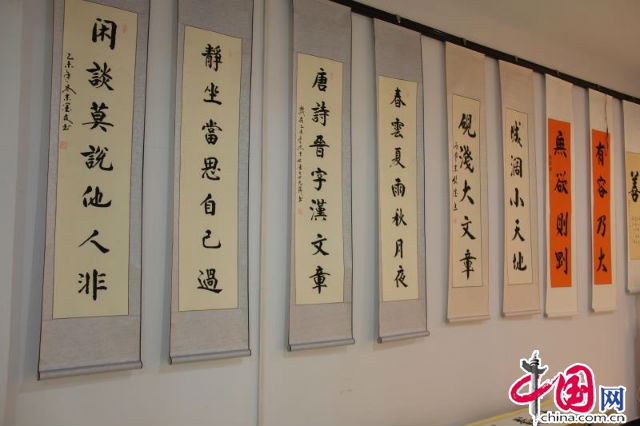 善
有容乃大
無欲則剛
小天地
大文章
春雲夏雨秋月夜
唐詩晋字漢文章
靜坐當思自己過
闲談莫說他人非
中国网
china.com.cn